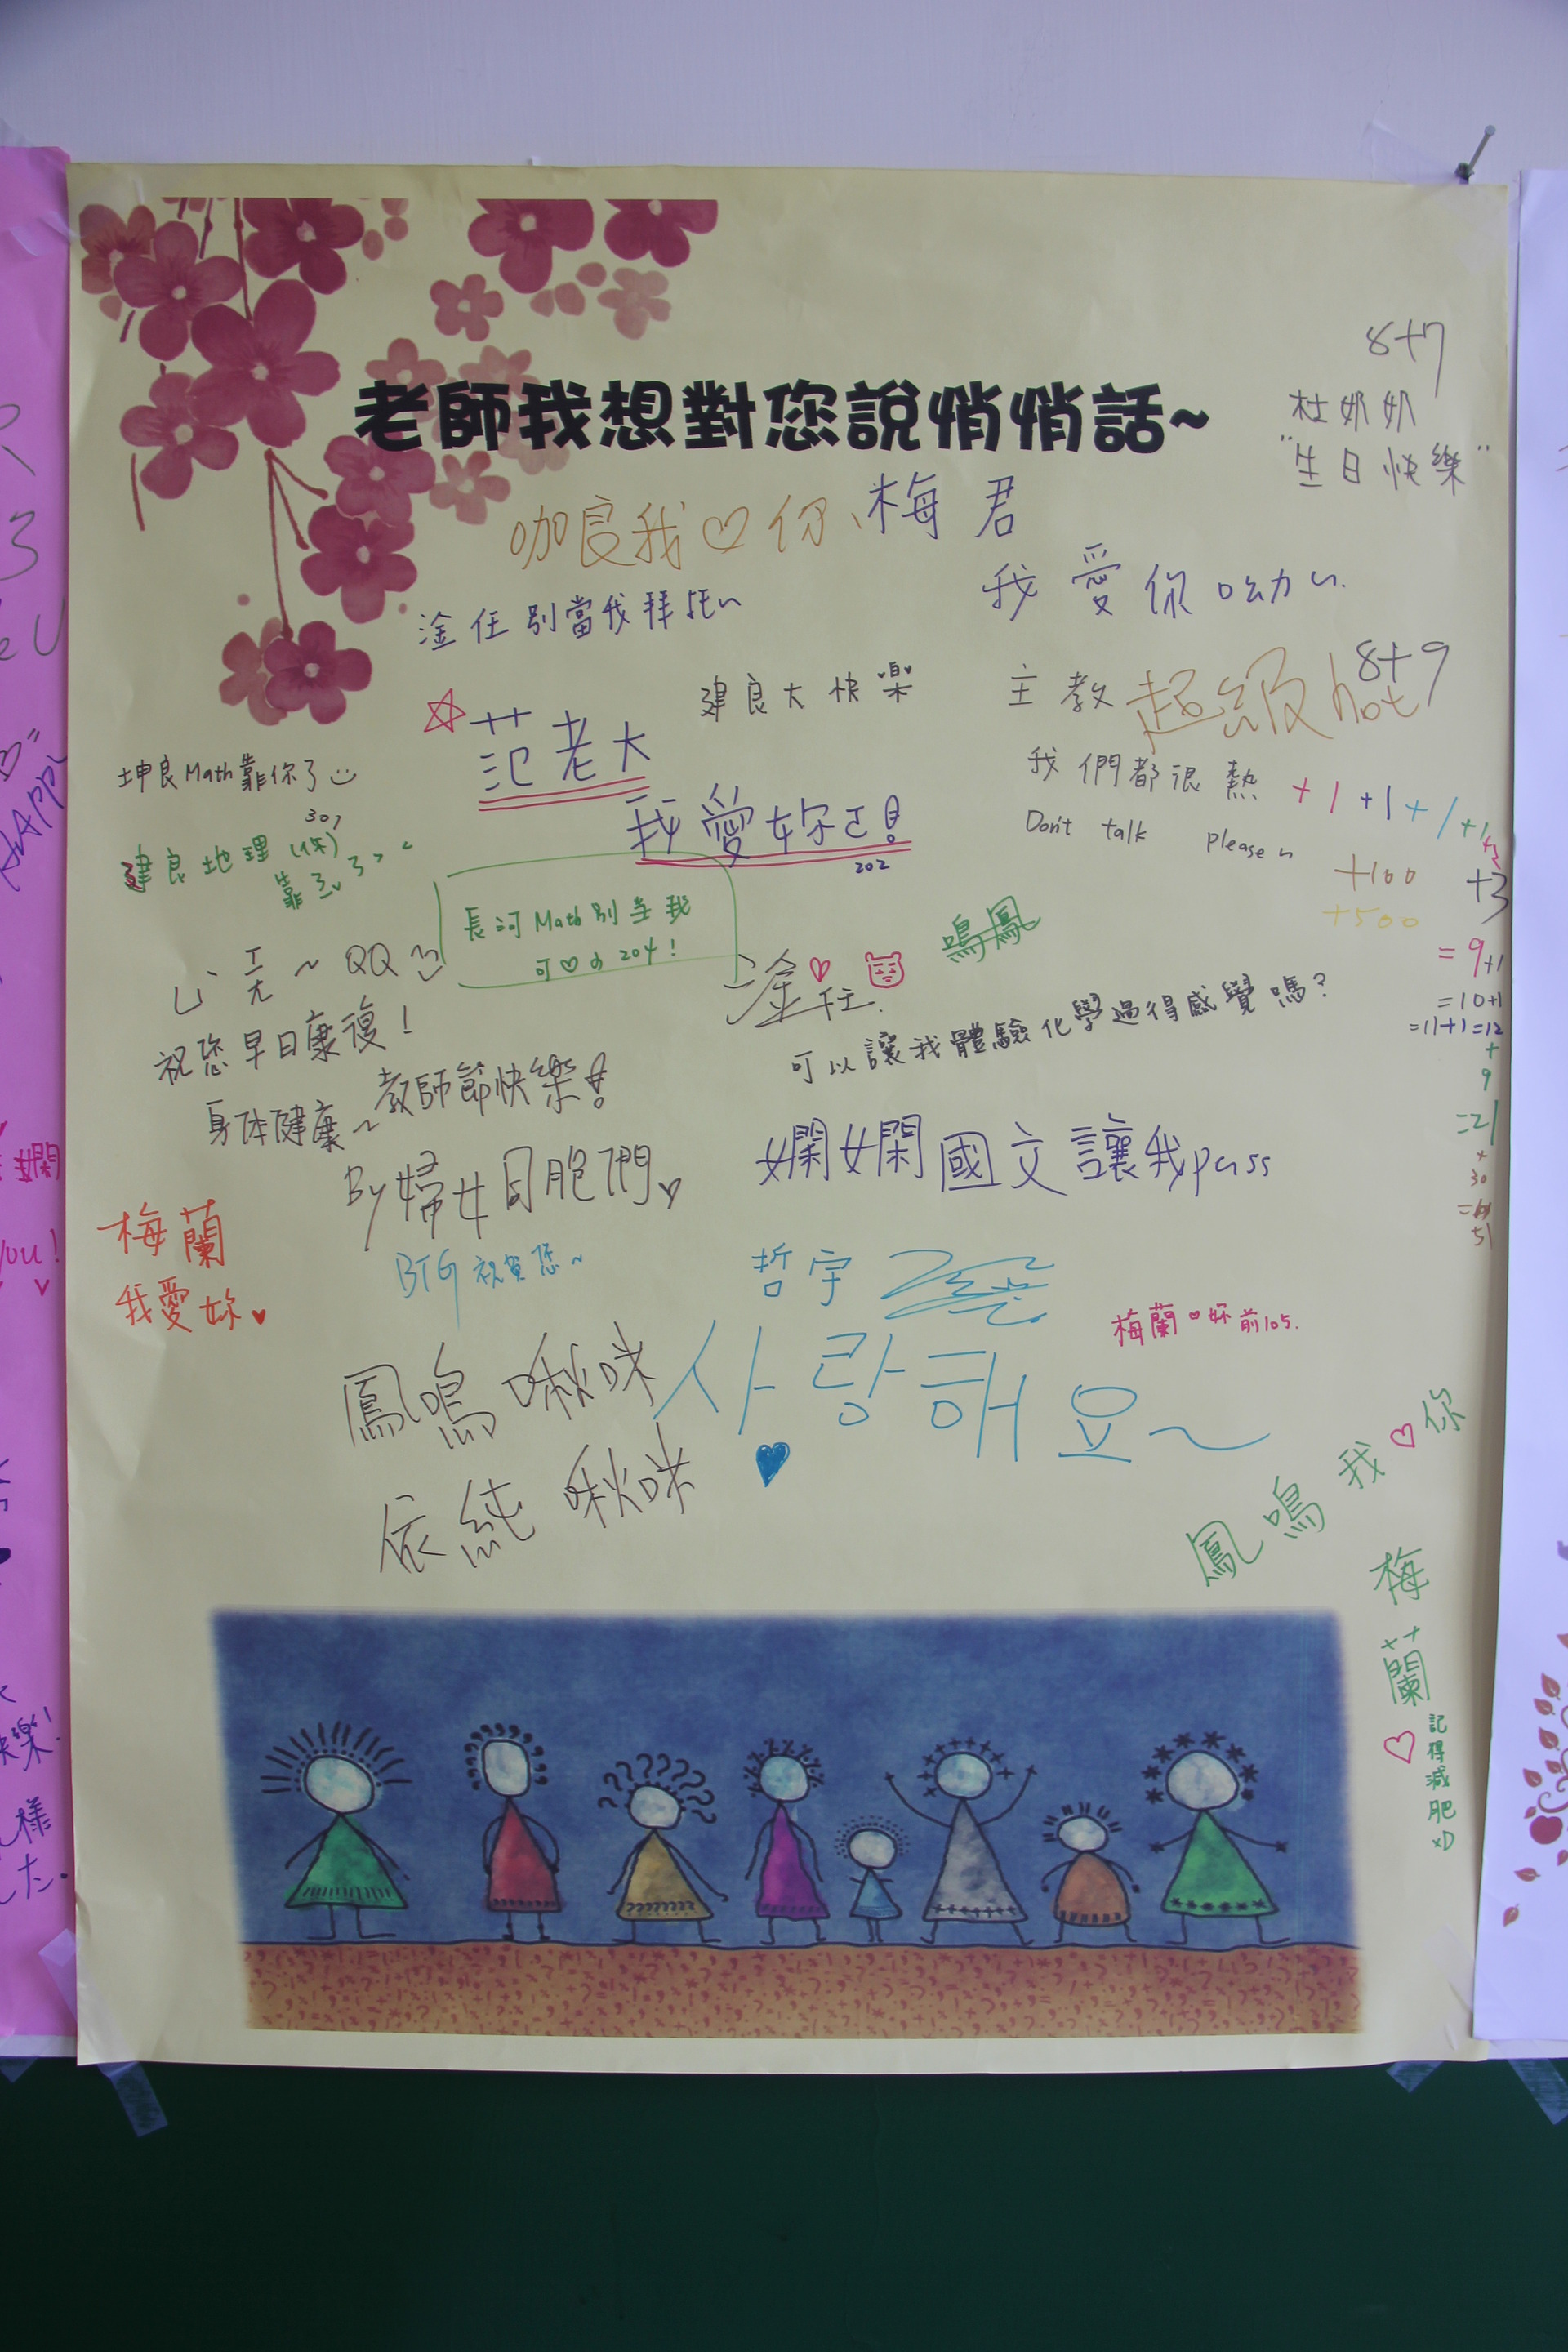 老師我想對您說悄悄話~
8+7
杜奶奶
"生日快樂"
咖良我♡你、梅君
我愛你呦~.
淦任別當我拜託~
建良大快樂
主教超級hot
8+9
☆范老大
我愛妳ㄛ!
202
我們都很熱 +1 +1 +1 +1
Don't talk please~
+100
+3
+500
= 9+1
=10+1
=11+1=12
+
9
=21
+
30
51
坤良Math靠你了
301
建良地理
靠
長河Math別當我
可♡の204!
~QQ
祝您早日康復!
身体健康~教師節快樂!
By婦女同胞們♥
淦♡任.
鳴鳳
可以讓我體驗化學過得感覺嗎?
嫻嫻國文讓我pass
梅蘭
我愛妳♥
BTG祝賀您~
哲宇
사랑해요~
梅蘭♡妳前105.
鳳鳴啾咪
依純啾咪
鳳鳴我♡你
梅蘭♡
記得減肥xD
嫻
you!
快樂!
樣
した.